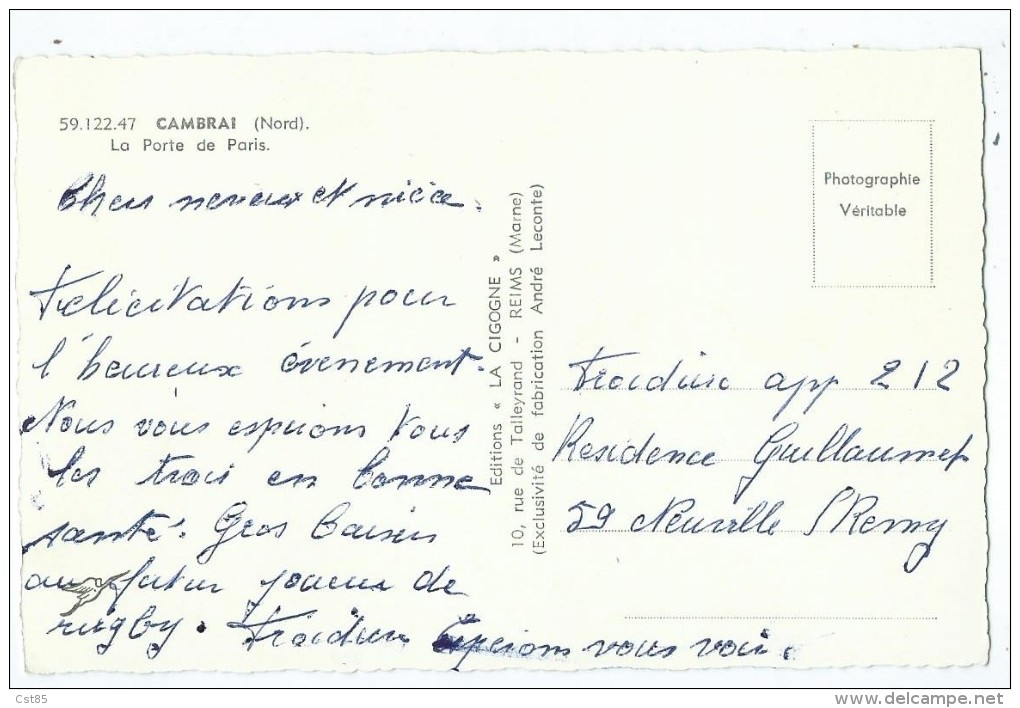 59.122.47 CAMBRAI (Nord).
La Porte de Paris.
Chers neveux et nièce.
Félicitations pour
l'heureux évènement.
Nous vous espérons tous
les trois en bonne
santé. Gros baisers
au futur joueur de
rugby. espérons vous voir.
Editions « LA CIGOGNE »
10, rue de Talleyrand - REIMS (Marne)
(Exclusivité de fabrication André Leconte)
Photographie
Véritable
app 212
Residence Guillaumet
59 Neuville S/Remy
Cst85